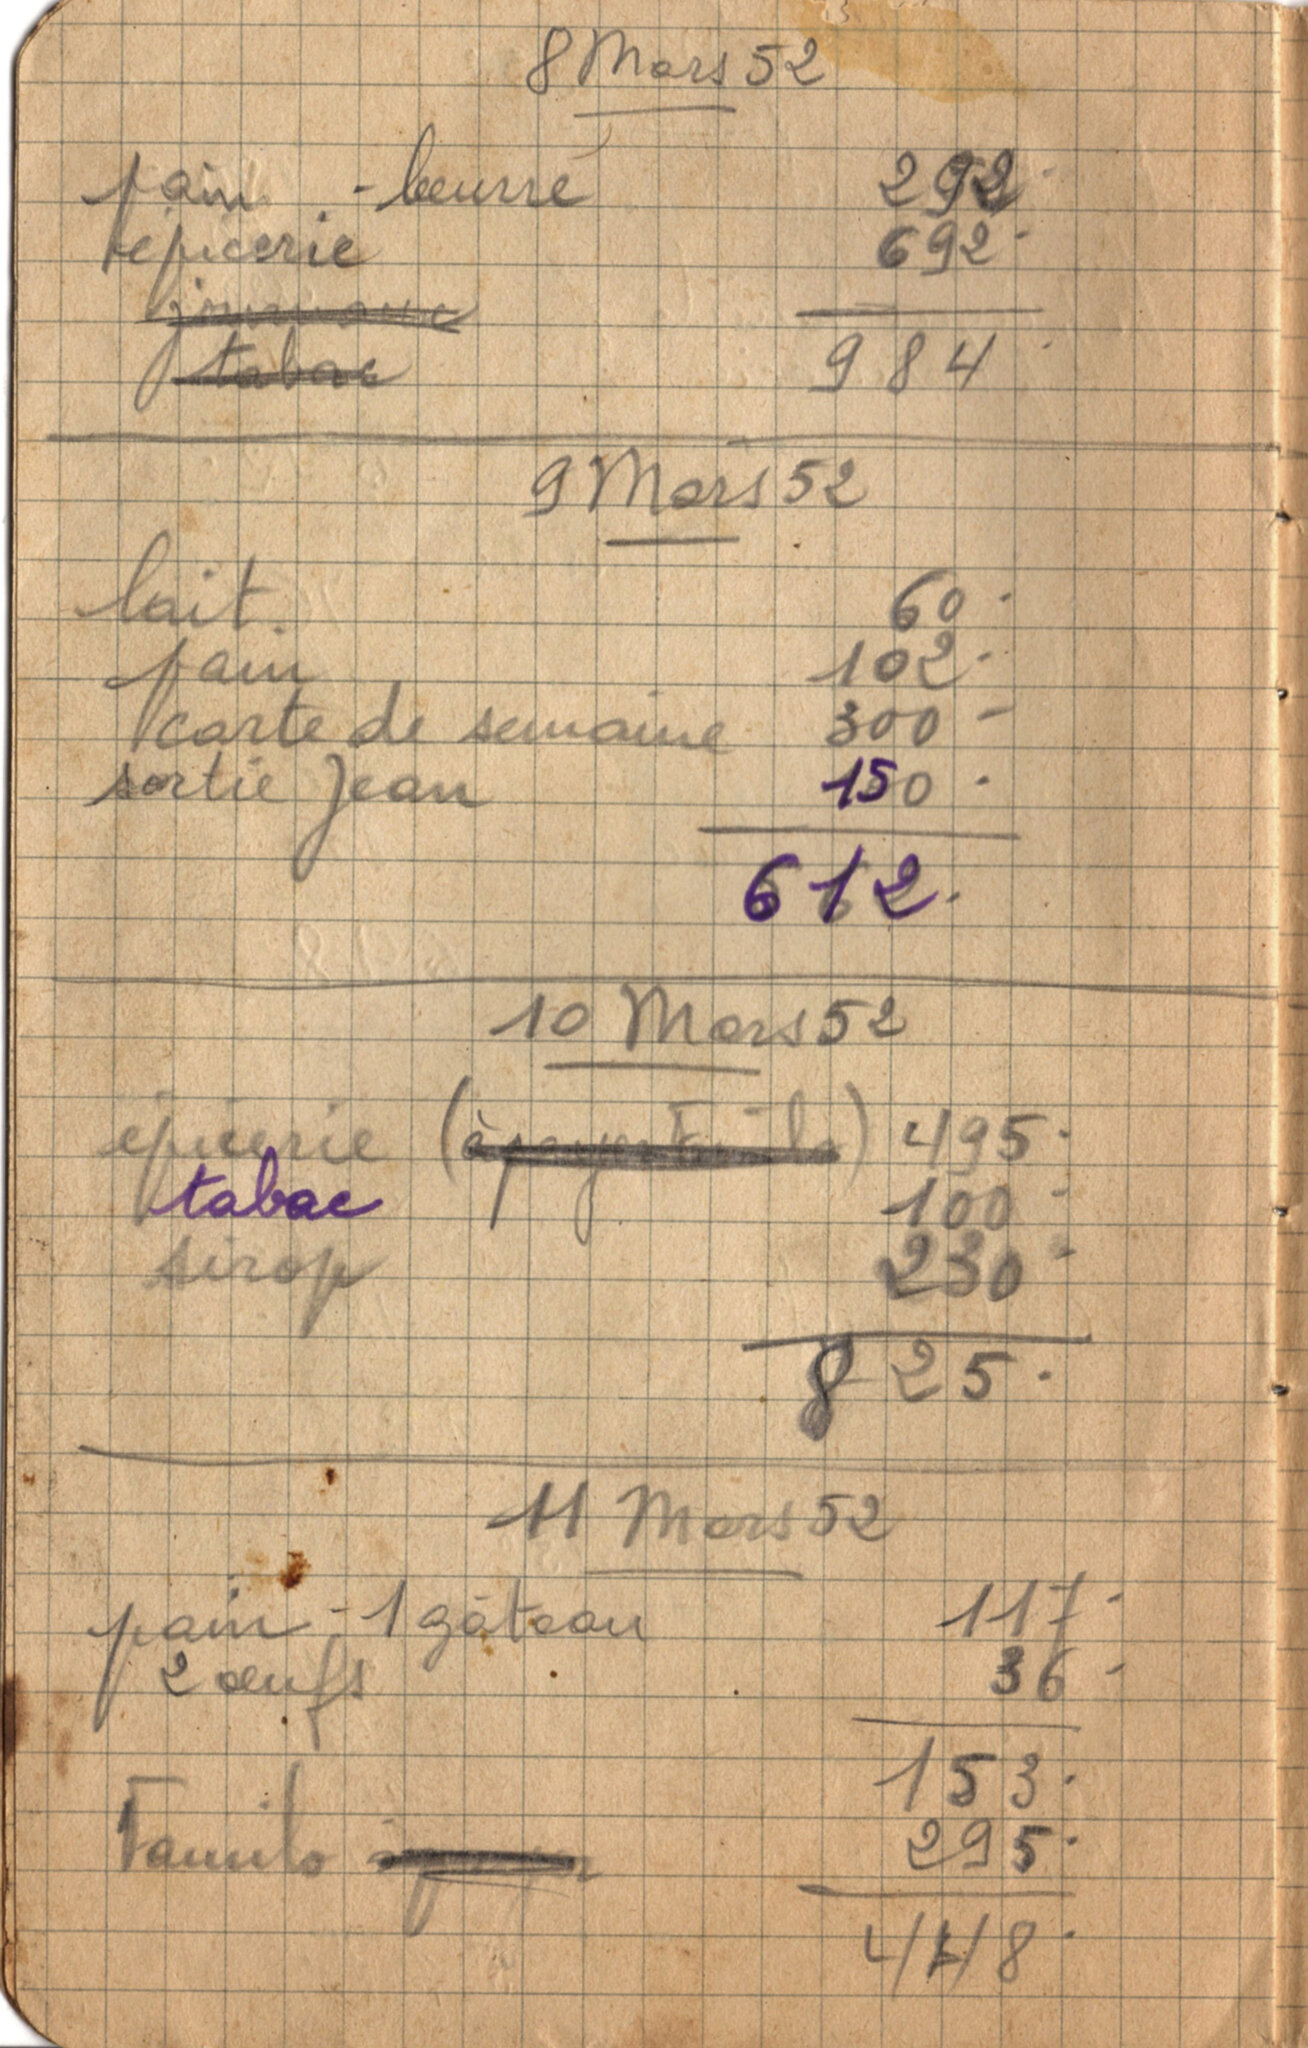 8 Mars 52
pain - beurre 292
épicerie 692
tabac 984
9 Mars 52
lait 60
pain 102
carte de semaine 300
sortie Jean 150
612
10 Mars 52
épicerie (à payer Familo) 495
tabac 100
sirop 230
825
11 Mars 52
pain - 1 gâteau 117
2 œufs 36
153
Familo 295
448